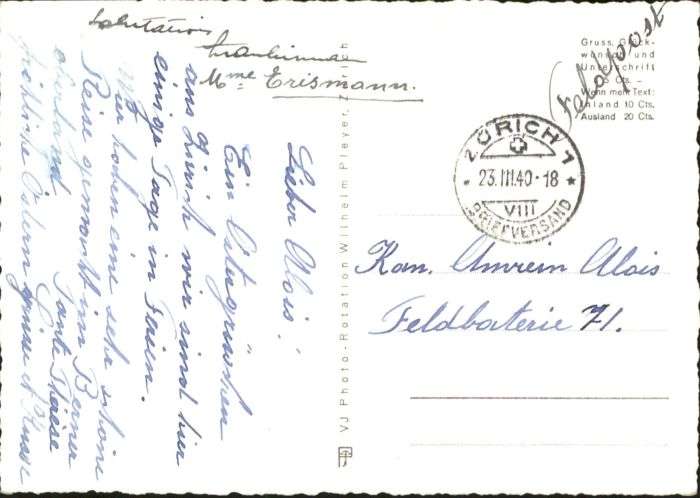 Salutations
Mme Erismann.
Lieber Alois!
Ein Ostergrüschen
aus Zürich wir sind hier
einige Tage in Ferien.
Wir haben eine sehr schöne
Reise gemacht im Berner
oberland
Tante Therese
fröhliche Ostern
Feldpost
Gruss, Glück-
wunsch und
Unterschrift
5 Cts.
Wenn mehr Text:
Inland 10 Cts.
Ausland 20 Cts.
ZÜRICH 1
23.III.40-18
VIII
BRIEFVERSAND
Kan. Amrein Alois
Feldbaterie 71.
VJ Photo-Rotation Wilhelm Pleyer, Zürich